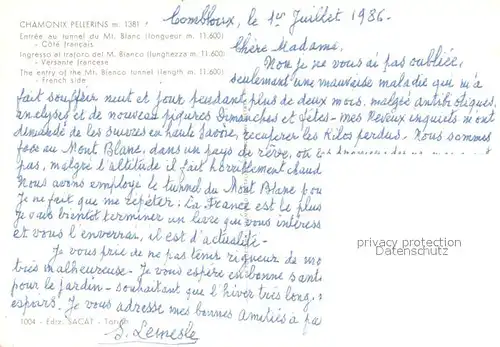 CHAMONIX PELLERINS m. 1381
Entrée au tunnel du Mt. Blanc (longueur m. 11.600)
- Côté français
Ingresso al traforo del M. Bianco (lunghezza m. 11.600)
- Versante francese
The entry of the Mt. Bianco tunnel (length m. 11.600)
- French side
Combloux, le 1er Juillet 1986.
Chère Madame,
Non je ne vous ai pas oubliée,
seulement une mauvaise maladie qui m'a
fait souffrir nuit et jour pendant plus de deux mois, malgré antibiotiques,
analyses et de nouveau piqures Dimanches et fêtes - mes Neveux inquiets m'ont
demandé de les suivre en haute Savoie, récupérer les Kilos perdus. Nous sommes
face au Mont Blanc, dans un pays de rêve, où
pas, malgré l'altitude il fait horriblement chaud
Nous avons employé le tunnel du Mont Blanc pou
Je ne fait que me répéter: La France est le plus
Je vais bientôt terminer un livre qui vous intéress
et vous l'enverrai, il est d'actualité -
Je vous prie de ne pas tenir rigueur de mo
très malheureuse - Je vous espère en bonne sant
pour le jardin - souhaitant que l'hiver très long,
espoirs. Je vous adresse mes bonnes amitiés a pa
S. Lemesle
1004 - Ediz. SACAT - Torino
privacy protection
Datenschutz